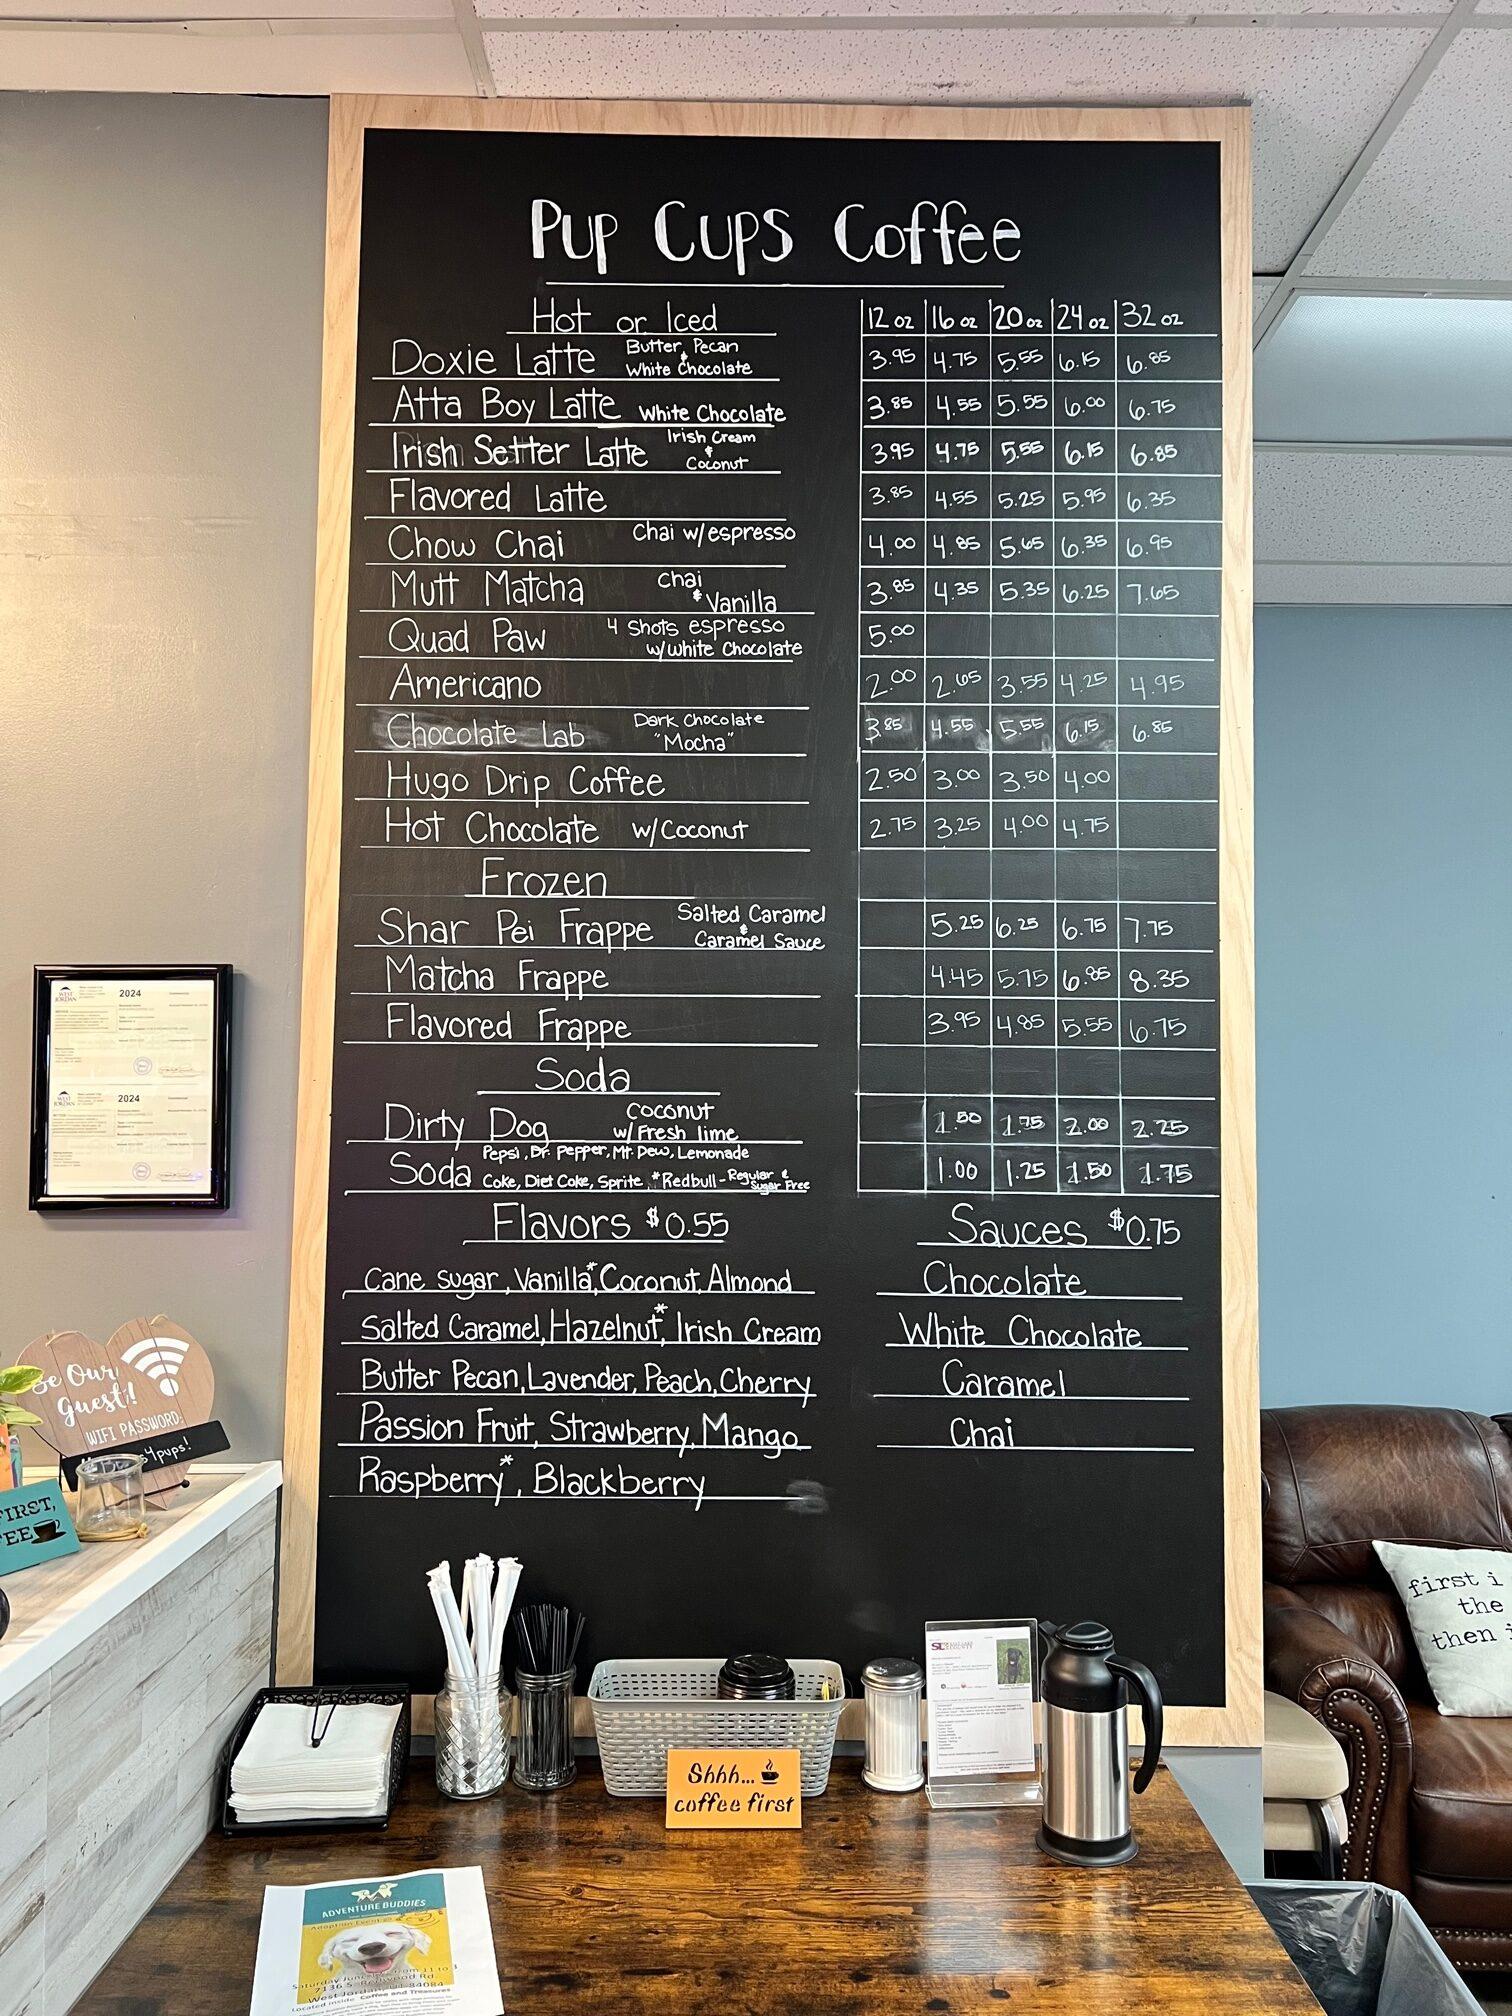 Pup Cups Coffee
Hot or Iced 12 oz 16 oz 20 oz 24 oz 32 oz
Doxie Latte Butter Pecan & White Chocolate 3.95 4.75 5.55 6.15 6.85
Atta Boy Latte White Chocolate 3.85 4.55 5.55 6.00 6.75
Irish Setter Latte Irish Cream & Coconut 3.95 4.75 5.55 6.15 6.85
Flavored Latte 3.85 4.55 5.25 5.95 6.35
Chow Chai Chai w/espresso 4.00 4.85 5.65 6.35 6.95
Mutt Matcha Chai & Vanilla 3.85 4.35 5.35 6.25 7.65
Quad Paw 4 shots espresso w/white Chocolate 5.00
Americano 2.00 2.65 3.55 4.25 4.95
Chocolate Lab Dark Chocolate "Mocha" 3.85 4.55 5.55 6.15 6.85
Hugo Drip Coffee 2.50 3.00 3.50 4.00
Hot Chocolate w/Coconut 2.75 3.25 4.00 4.75
Frozen
Shar Pei Frappe Salted Caramel & Caramel Sauce 5.25 6.25 6.75 7.75
Matcha Frappe 4.45 5.75 6.85 8.35
Flavored Frappe 3.95 4.85 5.55 6.75
Soda
Dirty Dog Coconut w/Fresh lime 1.50 1.75 2.00 2.25
Soda Pepsi, Dr. Pepper, Mt. Dew, Lemonade
Coke, Diet Coke, Sprite, *Redbull-Regular & Sugar Free 1.00 1.25 1.50 1.75
Flavors $0.55 Sauces $0.75
Cane sugar, Vanilla*, Coconut, Almond Chocolate
Salted Caramel, Hazelnut*, Irish Cream White Chocolate
Butter Pecan, Lavender, Peach, Cherry Caramel
Passion Fruit, Strawberry, Mango Chai
Raspberry*, Blackberry
WEST JORDAN 2024
WEST JORDAN 2024
Be Our Guest!
WIFI PASSWORD:
4pups!
FIRST,
Shhh...
coffee first
first i
the
then
ADVENTURE BUDDIES
Adoption Event
Saturday from 11 to
7136 S. Redwood Rd
West Jordan, UT 84084
Located inside Coffee and Treasures